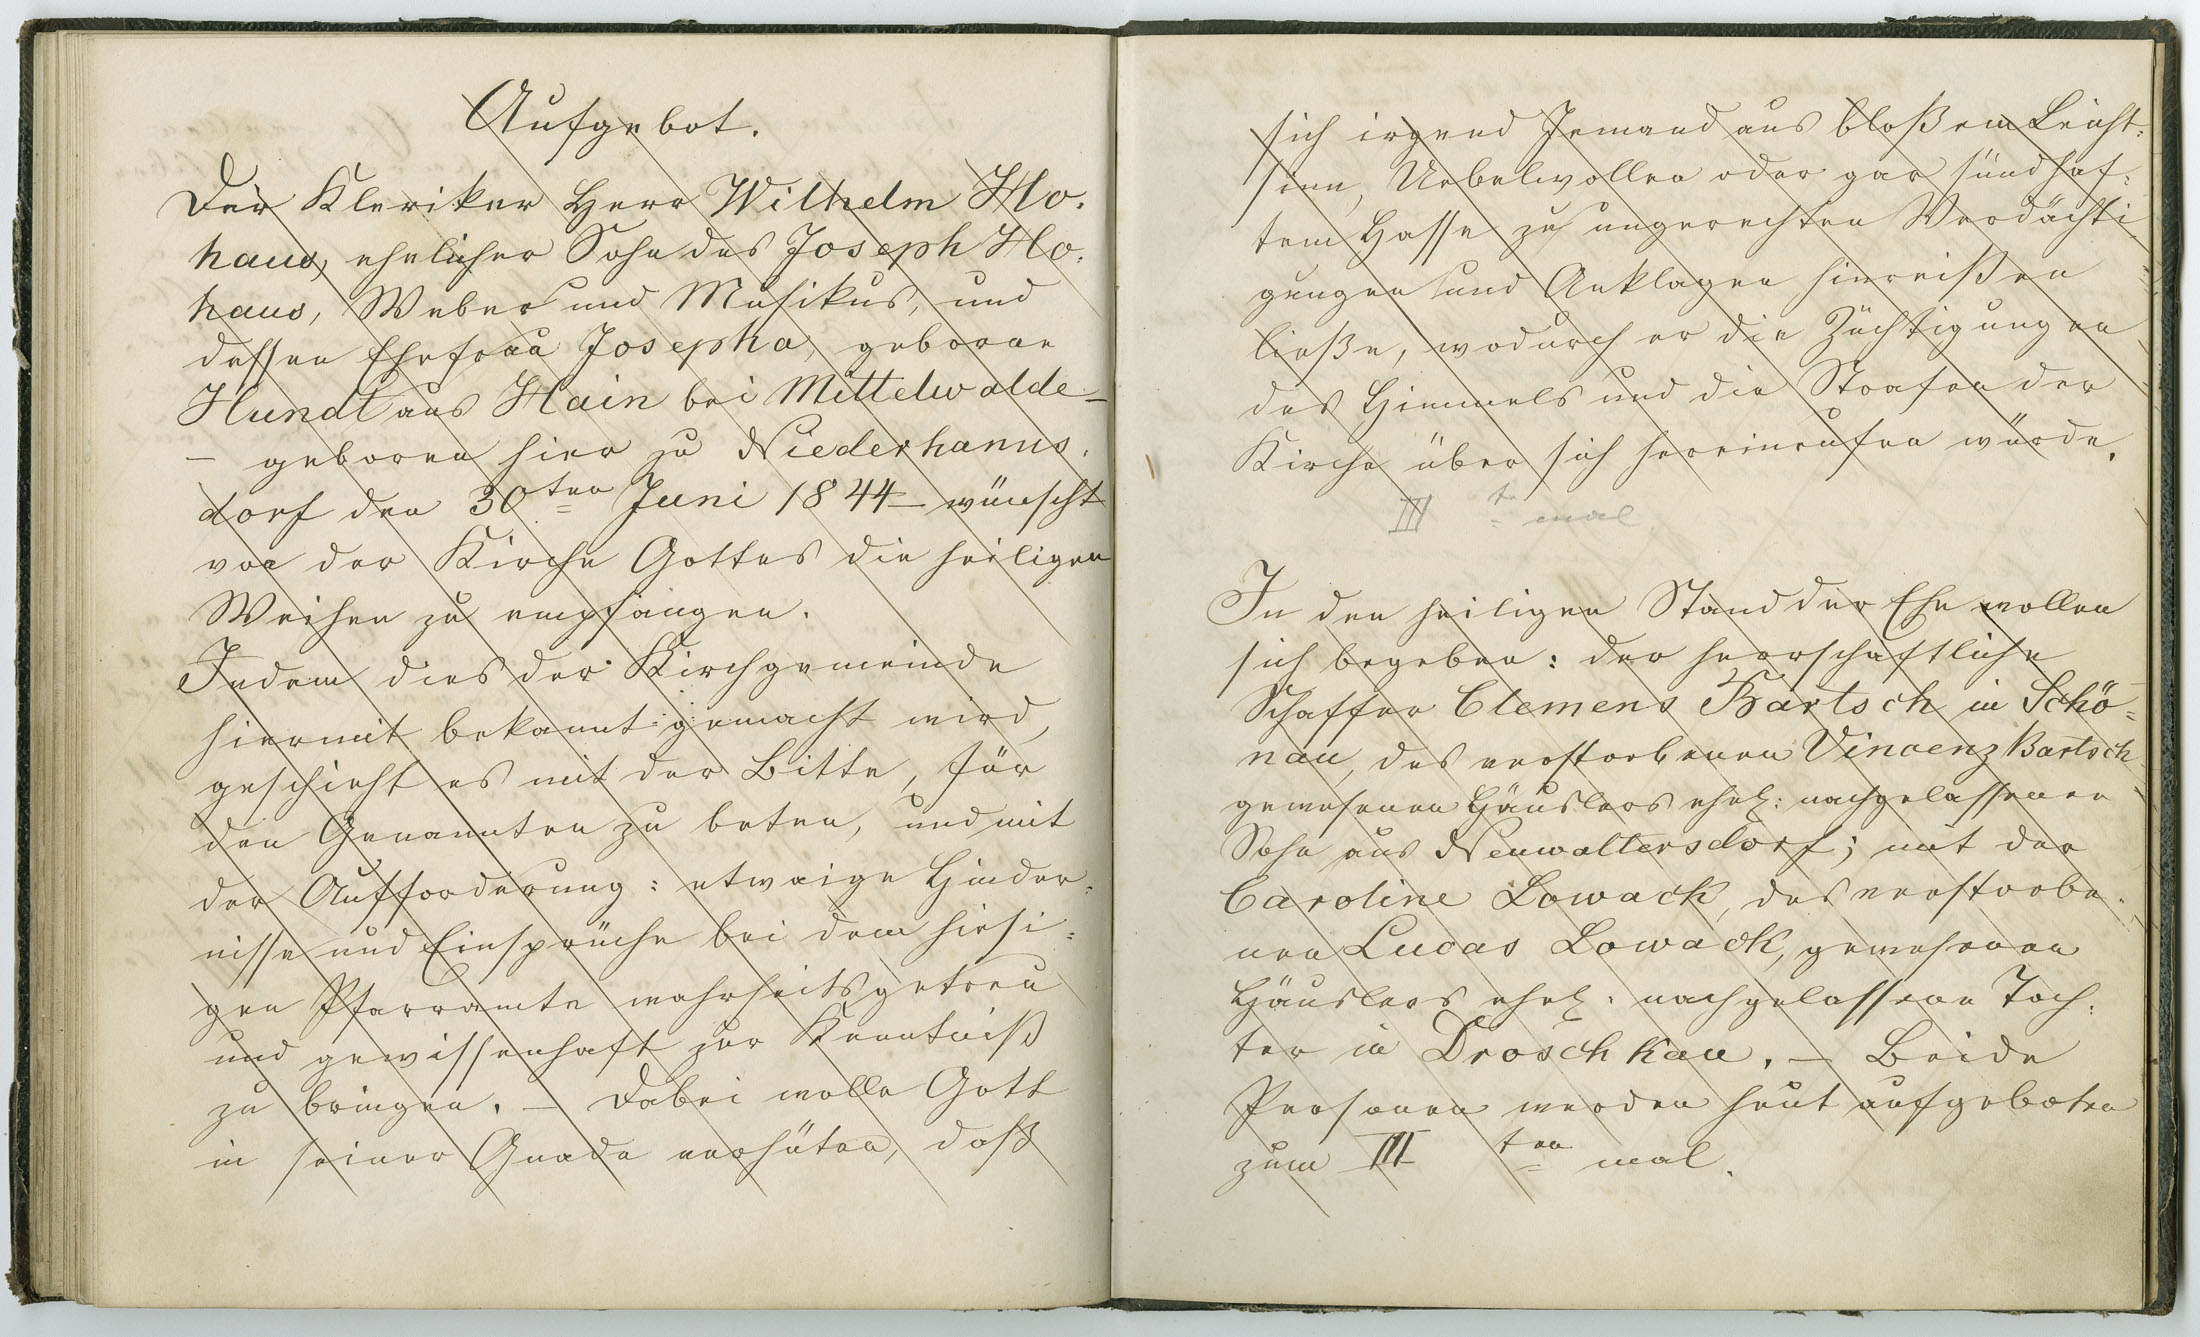 Aufgebot.
Der Kleriker Herr Wilhelm Ho-
haus, ehelicher Sohn des Joseph Ho-
haus, Weber und Musikus, und
dessen Ehefrau Josepha, geborne
Hundt aus Hain bei Mittelwalde –
– geboren hier zu Niederhanns-
dorf den 30ten Juni 1844 – wünscht
von der Kirche Gottes die heiligen
Weihen zu empfangen.
Indem dies der Kirchgemeinde
hiermit bekannt gemacht wird,
geschieht es mit der Bitte, für
den Genannten zu beten, und mit
der Aufforderung: etwaige Hinder-
nisse und Einsprüche bei dem hiesi-
gen Pfarramte wahrheitsgetreu
und gewissenhaft zur Kenntniß
zu bringen. – Dabei wolle Gott
in seiner Gnade verhüten, daß
sich irgend Jemand aus bloßem Leicht-
sinn, Uebelwollen oder gar sündhaf-
tem Hasse zu ungerechten Verdächti-
gungen und Anklagen hinreißen
ließe, wodurch er die Züchtigungen
des Himmels und die Strafen der
Kirche über sich hereinrufen würde.
III t. mal
In den heiligen Stand der Ehe wollen
sich begeben: der herrschaftliche
Schaffer Clemens Bartsch in Schö-
nau, des verstorbenen Vincenz Bartsch
gewesenen Häuslers ehel: nachgelassener
Sohn aus Neuwaltersdorf; mit der
Caroline Lowack, des verstorbe-
nen Lucas Lowack, gewesenen
Häuslers ehel: nachgelassene Toch-
ter in Droschkau. – Beide
Personen werden heut aufgeboten
zum III ten mal.